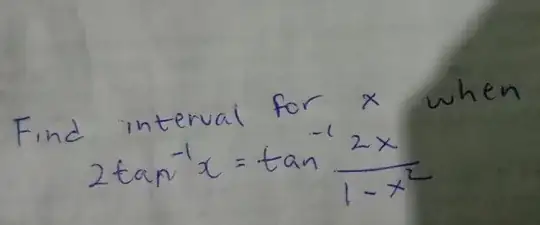 Find interval for x when
2tan⁻¹x = tan⁻¹ 2x/1-x²